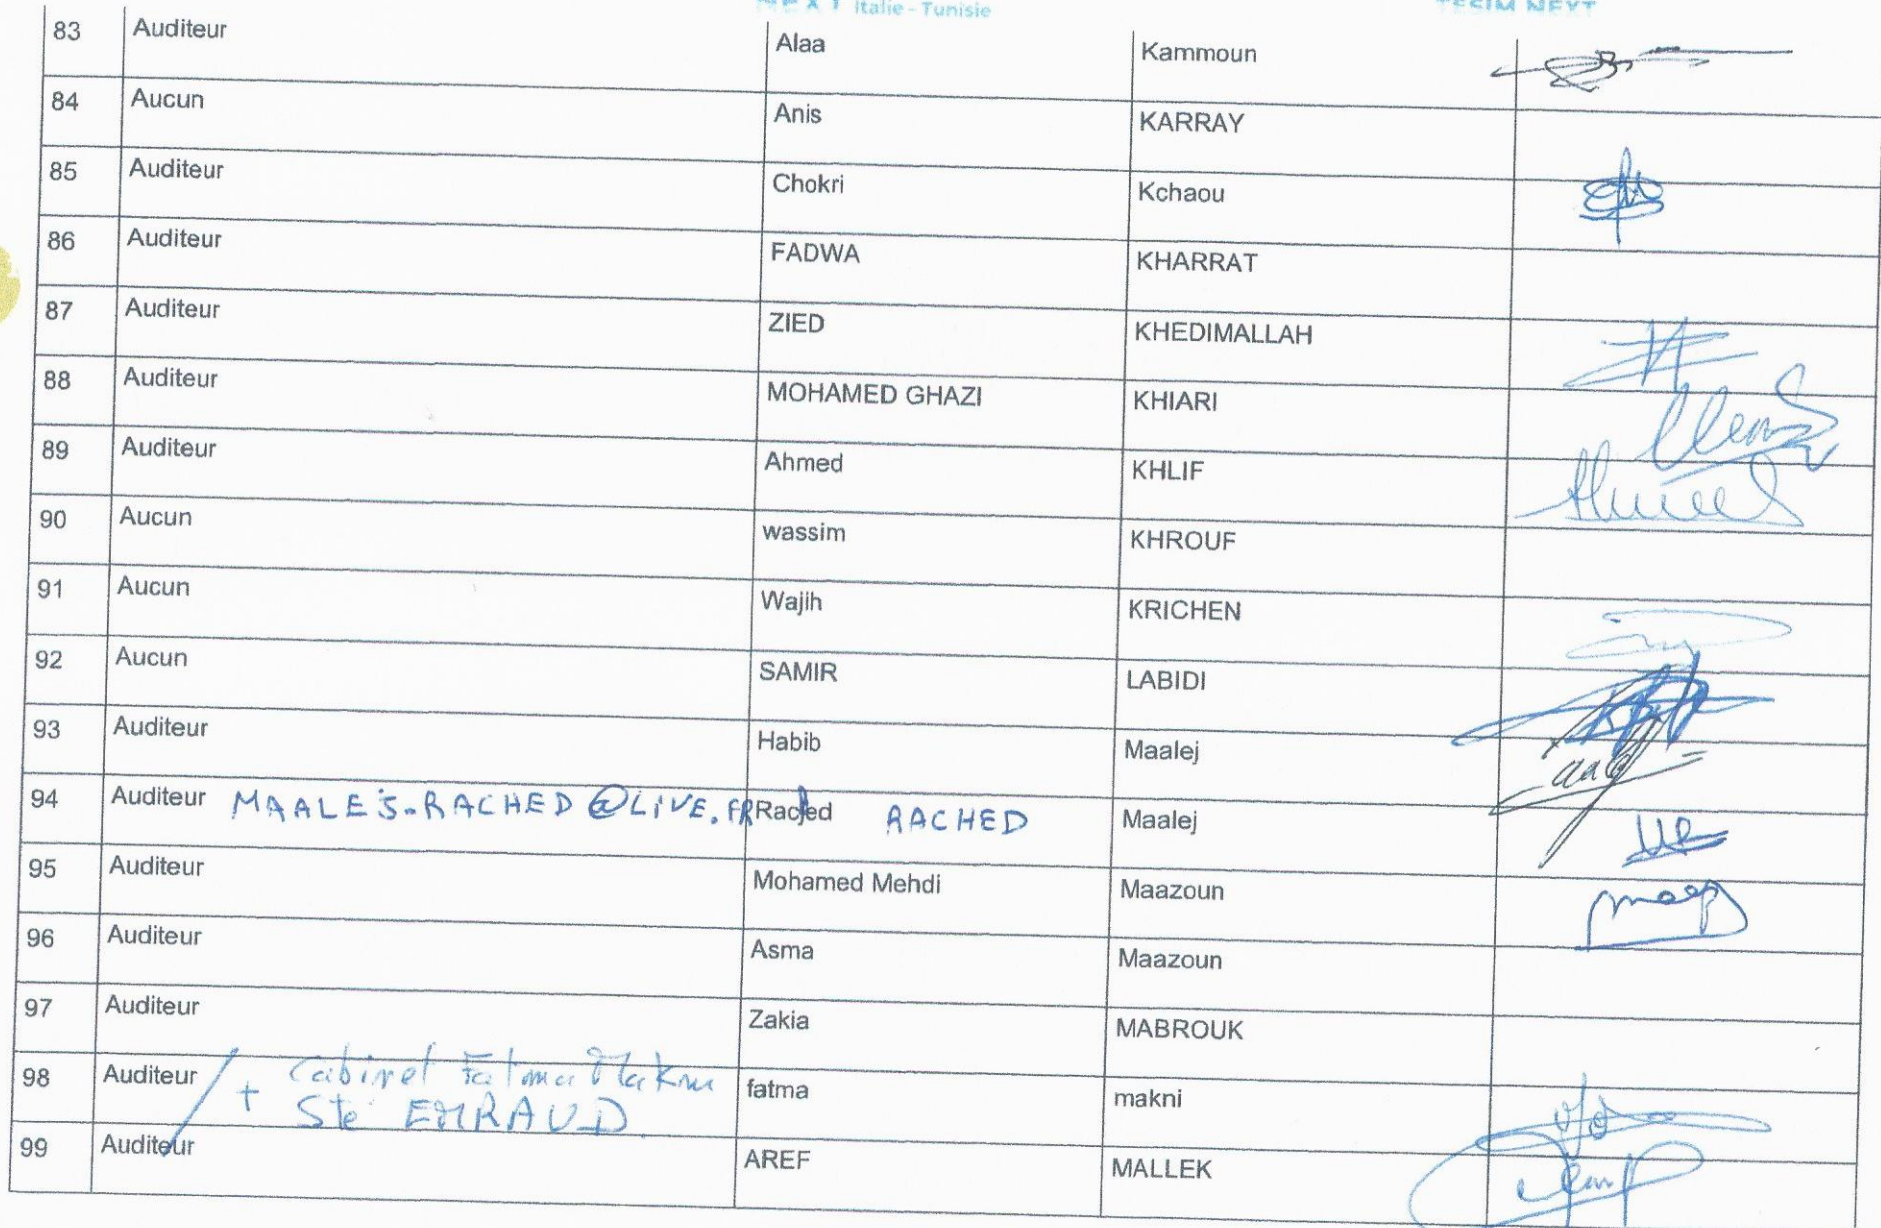 NEXT Italie - Tunisie TESIM NEXT
83 Auditeur Alaa Kammoun
84 Aucun Anis KARRAY
85 Auditeur Chokri Kchaou
86 Auditeur FADWA KHARRAT
87 Auditeur ZIED KHEDIMALLAH
88 Auditeur MOHAMED GHAZI KHIARI
89 Auditeur Ahmed KHLIF
90 Aucun wassim KHROUF
91 Aucun Wajih KRICHEN
92 Aucun SAMIR LABIDI
93 Auditeur Habib Maalej
94 Auditeur MAALEJ.RACHED@LIVE.FR Rached RACHED Maalej
95 Auditeur Mohamed Mehdi Maazoun
96 Auditeur Asma Maazoun
97 Auditeur Zakia MABROUK
98 Auditeur + Cabinet Fatma Makni fatma makni
Ste EMRAUD
99 Auditeur AREF MALLEK